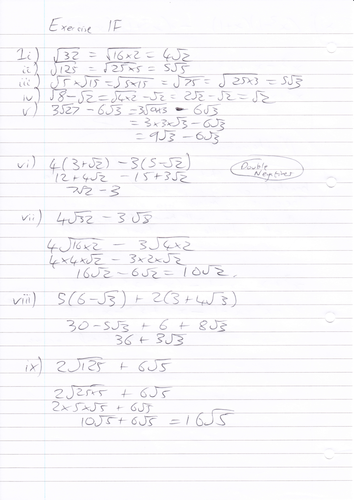 Exercise 1F
1i) √32 = √16×2 = 4√2
ii) √125 = √25×5 = 5√5
iii) √5 × √15 = √5×15 = √75 = √25×3 = 5√3
iv) √8 - √2 = √4×2 - √2 = 2√2 - √2 = √2
v) 3√27 - 6√3 = 3√9×3 - 6√3
= 3×3×√3 - 6√3
= 9√3 - 6√3
vi) 4(3+√2) - 3(5-√2)
Double Negatives
12 + 4√2 - 15 + 3√2
7√2 - 3
vii) 4√32 - 3√8
4√16×2 - 3√4×2
4×4×√2 - 3×2×√2
16√2 - 6√2 = 10√2.
viii) 5(6-√3) + 2(3+4√3)
30 - 5√3 + 6 + 8√3
36 + 3√3
ix) 2√125 + 6√5
2√25×5 + 6√5
2×5×√5 + 6√5
10√5 + 6√5 = 16√5